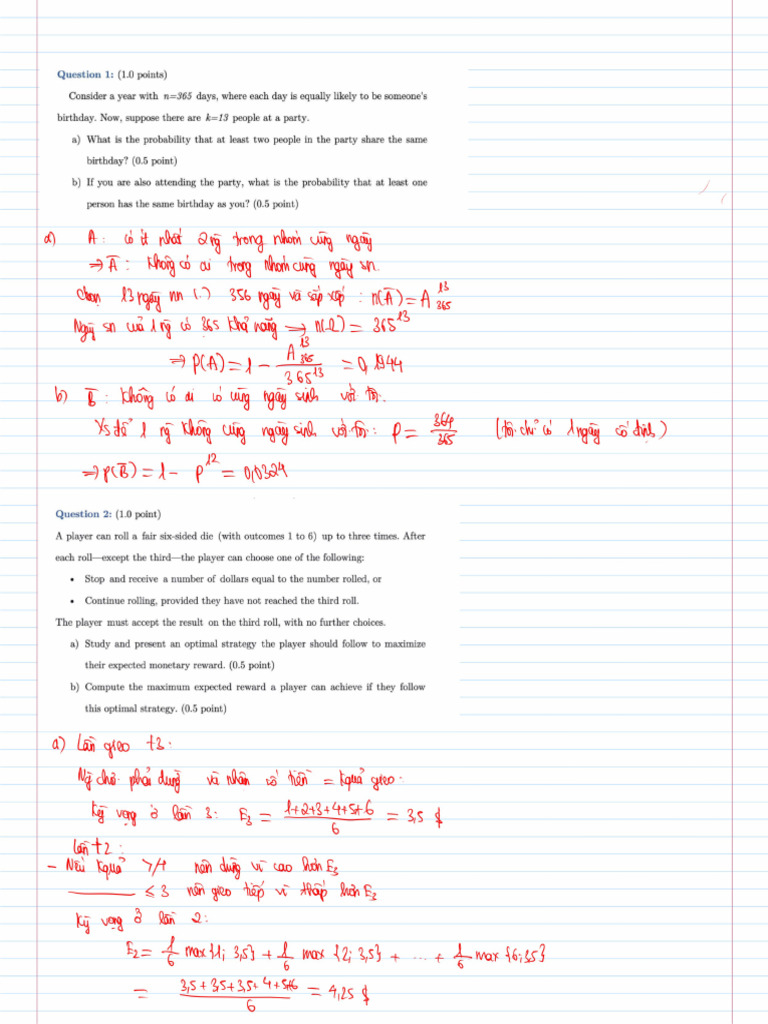 Question 1: (1.0 points)
Consider a year with n=365 days, where each day is equally likely to be someone's
birthday. Now, suppose there are k=13 people at a party.
a) What is the probability that at least two people in the party share the same
birthday? (0.5 point)
b) If you are also attending the party, what is the probability that at least one
person has the same birthday as you? (0.5 point)
a) A : có ít nhất 2 ng trong nhóm cùng ngày
⇒ A̅ : Không có ai trong nhóm cùng ngày sn.
Chọn 13 ngày nn (.) 356 ngày và sắp xếp : n(A̅) = A¹³₃₆₅
Ngày sn của 1 ng có 365 khả năng ⇒ n(Ω) = 365¹³
⇒ P(A) = 1 − A¹³₃₆₅ / 365¹³ = 0,1944
b) B̅ : Không có ai có cùng ngày sinh với tôi.
Xs để 1 ng không cùng ngày sinh với tôi : p = 364/365 (tôi chỉ có 1 ngày cố định)
⇒ P(B̅) = 1 − p¹² = 0,0324
Question 2: (1.0 point)
A player can roll a fair six-sided die (with outcomes 1 to 6) up to three times. After
each roll—except the third—the player can choose one of the following:
• Stop and receive a number of dollars equal to the number rolled, or
• Continue rolling, provided they have not reached the third roll.
The player must accept the result on the third roll, with no further choices.
a) Study and present an optimal strategy the player should follow to maximize
their expected monetary reward. (0.5 point)
b) Compute the maximum expected reward a player can achieve if they follow
this optimal strategy. (0.5 point)
a) Lần gieo t3 :
Ng chơi phải dừng và nhận số tiền = kquả gieo.
Kỳ vọng ở lần 3 : E₃ = (1+2+3+4+5+6)/6 = 3,5 $
Lần t2 :
− Nếu kquả ≥ 4 nên dừng vì cao hơn E₃
_____ ≤ 3 nên gieo tiếp vì thấp hơn E₃
Kỳ vọng ở lần 2 :
E₂ = 1/6 max {1; 3,5} + 1/6 max {2; 3,5} + ... + 1/6 max {6; 3,5}
= (3,5 + 3,5 + 3,5 + 4 + 5 + 6)/6 = 4,25 $